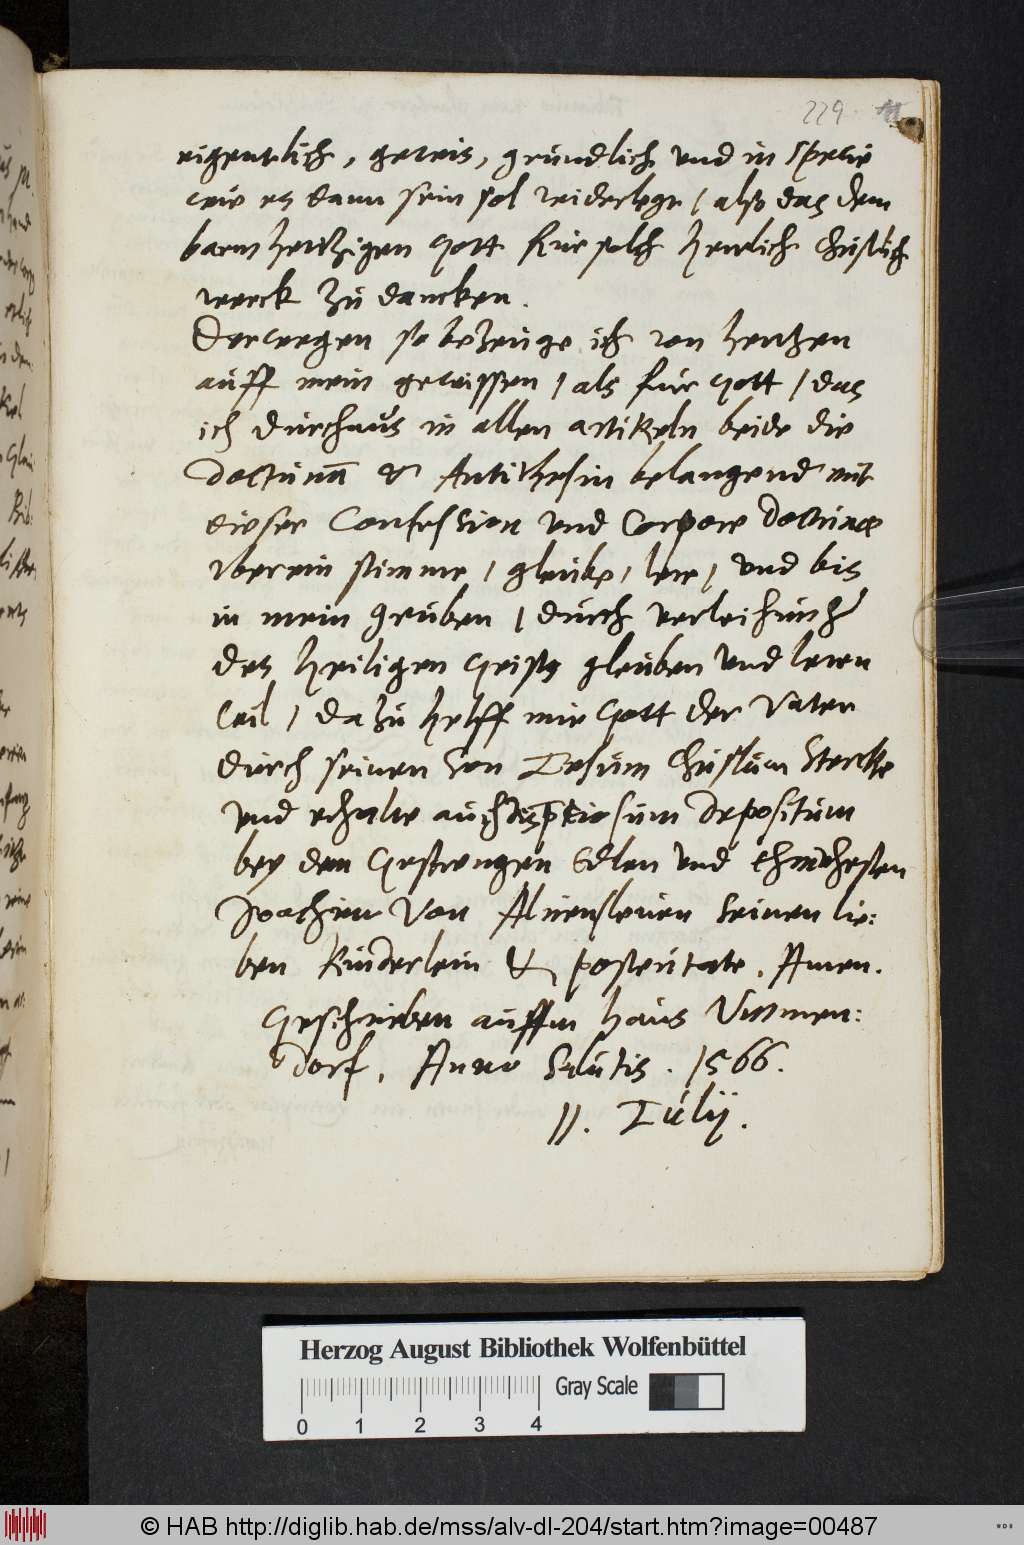 229.
eigentlich, gewis, gründlich und in specie
wie es dann sein sol widerlegt / also das dem
barmhertzigen Gott für solch herrlich Christlich
werck zu dancken.
Derwegen so bezeuge ich von hertzen
auff mein gewissen / als für Gott / das
ich durchaus in allen artikeln beide die
doctrinā & Antithesin belangend mit
dieser Confession und Corpore doctrinæ
uberein stimme / gleube / lere / und bis
in mein gruben / durch verleihung
des heiligen Geists gleuben und leren
wil / dazu helff mir Gott der Vater
durch seinen Son Iesum Christum Stercke
und erhalte auch dis p̄tiosum depositum
bey dem Gestrengen Edlen und Ehrnvhesten
Joachim Von Aluensleuen Seinen lie:
ben Kinderlein & posteritate. Amen.
Geschrieben auffm haus
dorf. Anno Salutis. 1566.
11. Iulij.
Herzog August Bibliothek Wolfenbüttel
Gray Scale
0 1 2 3 4
© HAB http://diglib.hab.de/mss/alv-dl-204/start.htm?image=00487